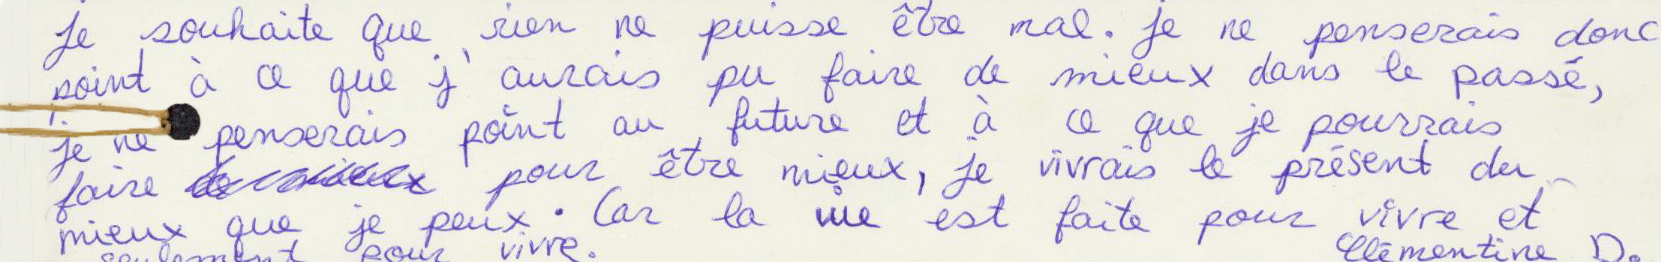 je souhaite que rien ne puisse être mal. je ne penserais donc
point à ce que j'aurais pu faire de mieux dans le passé,
je ne penserais point au future et à ce que je pourrais
faire pour être mieux, je vivrais le présent du
mieux que je peux. Car la vie est faite pour vivre et
seulement pour vivre. Clémentine D.